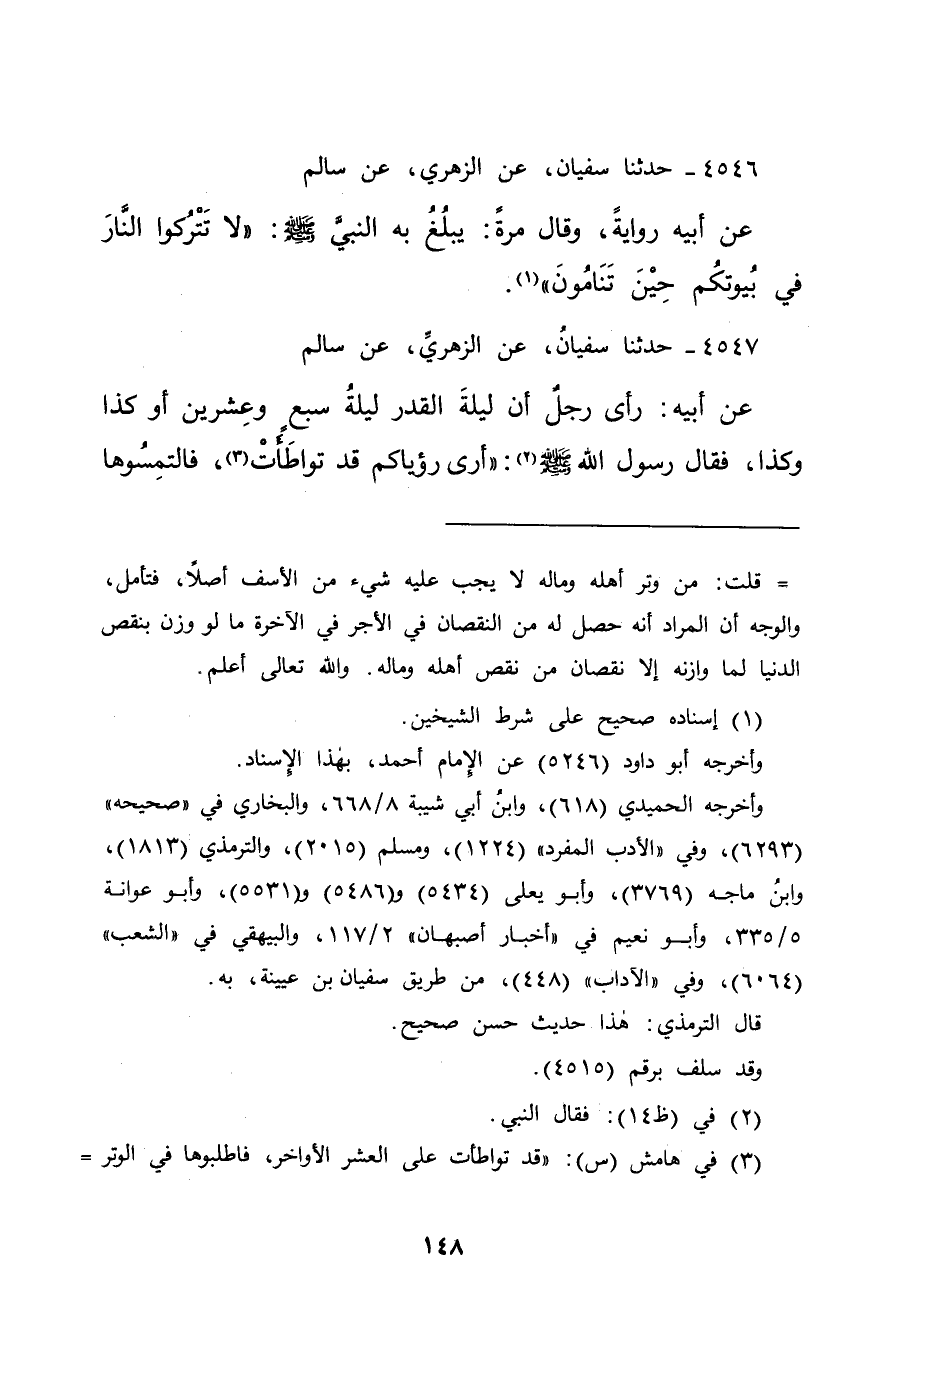 ٤٥٤٦ ـ حدثنا سفيان، عن الزهري، عن سالم
عن أبيه روايةً، وقال مرةً: يبلُغُ به النبيَّ ﷺ: «لا تَتْرُكوا النَّارَ
في بُيوتكُم حِيْنَ تَنَامُونَ»(١).
٤٥٤٧ ـ حدثنا سفيانُ، عن الزهريِّ، عن سالم
عن أبيه: رأى رجلٌ أن ليلةَ القدر ليلةُ سبعٍ وعِشرين أو كذا
وكذا، فقال رسول الله ﷺ(٢): «أرى رؤياكم قد تواطَأَتْ(٣)، فالتمِسُوها
= قلت: من وتر أهله وماله لا يجب عليه شيء من الأسف أصلًا، فتأمل،
والوجه أن المراد أنه حصل له من النقصان في الأجر في الآخرة ما لو وزن بنقص
الدنيا لما وازنه إلا نقصان من نقص أهله وماله. والله تعالى أعلم.
(١) إسناده صحيح على شرط الشيخين.
وأخرجه أبو داود (٥٢٤٦) عن الإمام أحمد، بهٰذا الإسناد.
وأخرجه الحميدي (٦١٨)، وابنُ أبي شيبة ٦٦٨/٨، والبخاري في «صحيحه»
(٦٢٩٣)، وفي «الأدب المفرد» (١٢٢٤)، ومسلم (٢٠١٥)، والترمذي (١٨١٣)،
وابنُ ماجه (٣٧٦٩)، وأبو يعلى (٥٤٣٤) و(٥٤٨٦) و(٥٥٣١)، وأبو عوانة
٣٣٥/٥، وأبو نعيم في «أخبار أصبهان» ١١٧/٢، والبيهقي في «الشعب»
(٦٠٦٤)، وفي «الآداب» (٤٤٨)، من طريق سفيان بن عيينة، به.
قال الترمذي: هٰذا حديث حسن صحيح.
وقد سلف برقم (٤٥١٥).
(٢) في (ظ١٤): فقال النبي.
(٣) في هامش (س): «قد تواطأت على العشر الأواخر، فاطلبوها في الوتر =
١٤٨